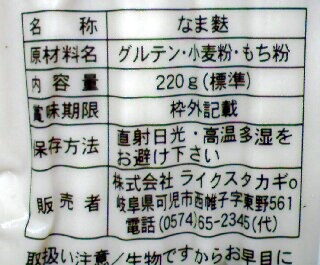 名称 なま麩
原材料名 グルテン・小麦粉・もち粉
内容量 220g(標準)
賞味期限 枠外記載
保存方法 直射日光・高温多湿を
お避け下さい
販売者 株式会社 ライクスタカギ
岐阜県可児市西帷子字東野561
電話 (0574)65-2345(代)
取扱い注意/生物ですからお早目に